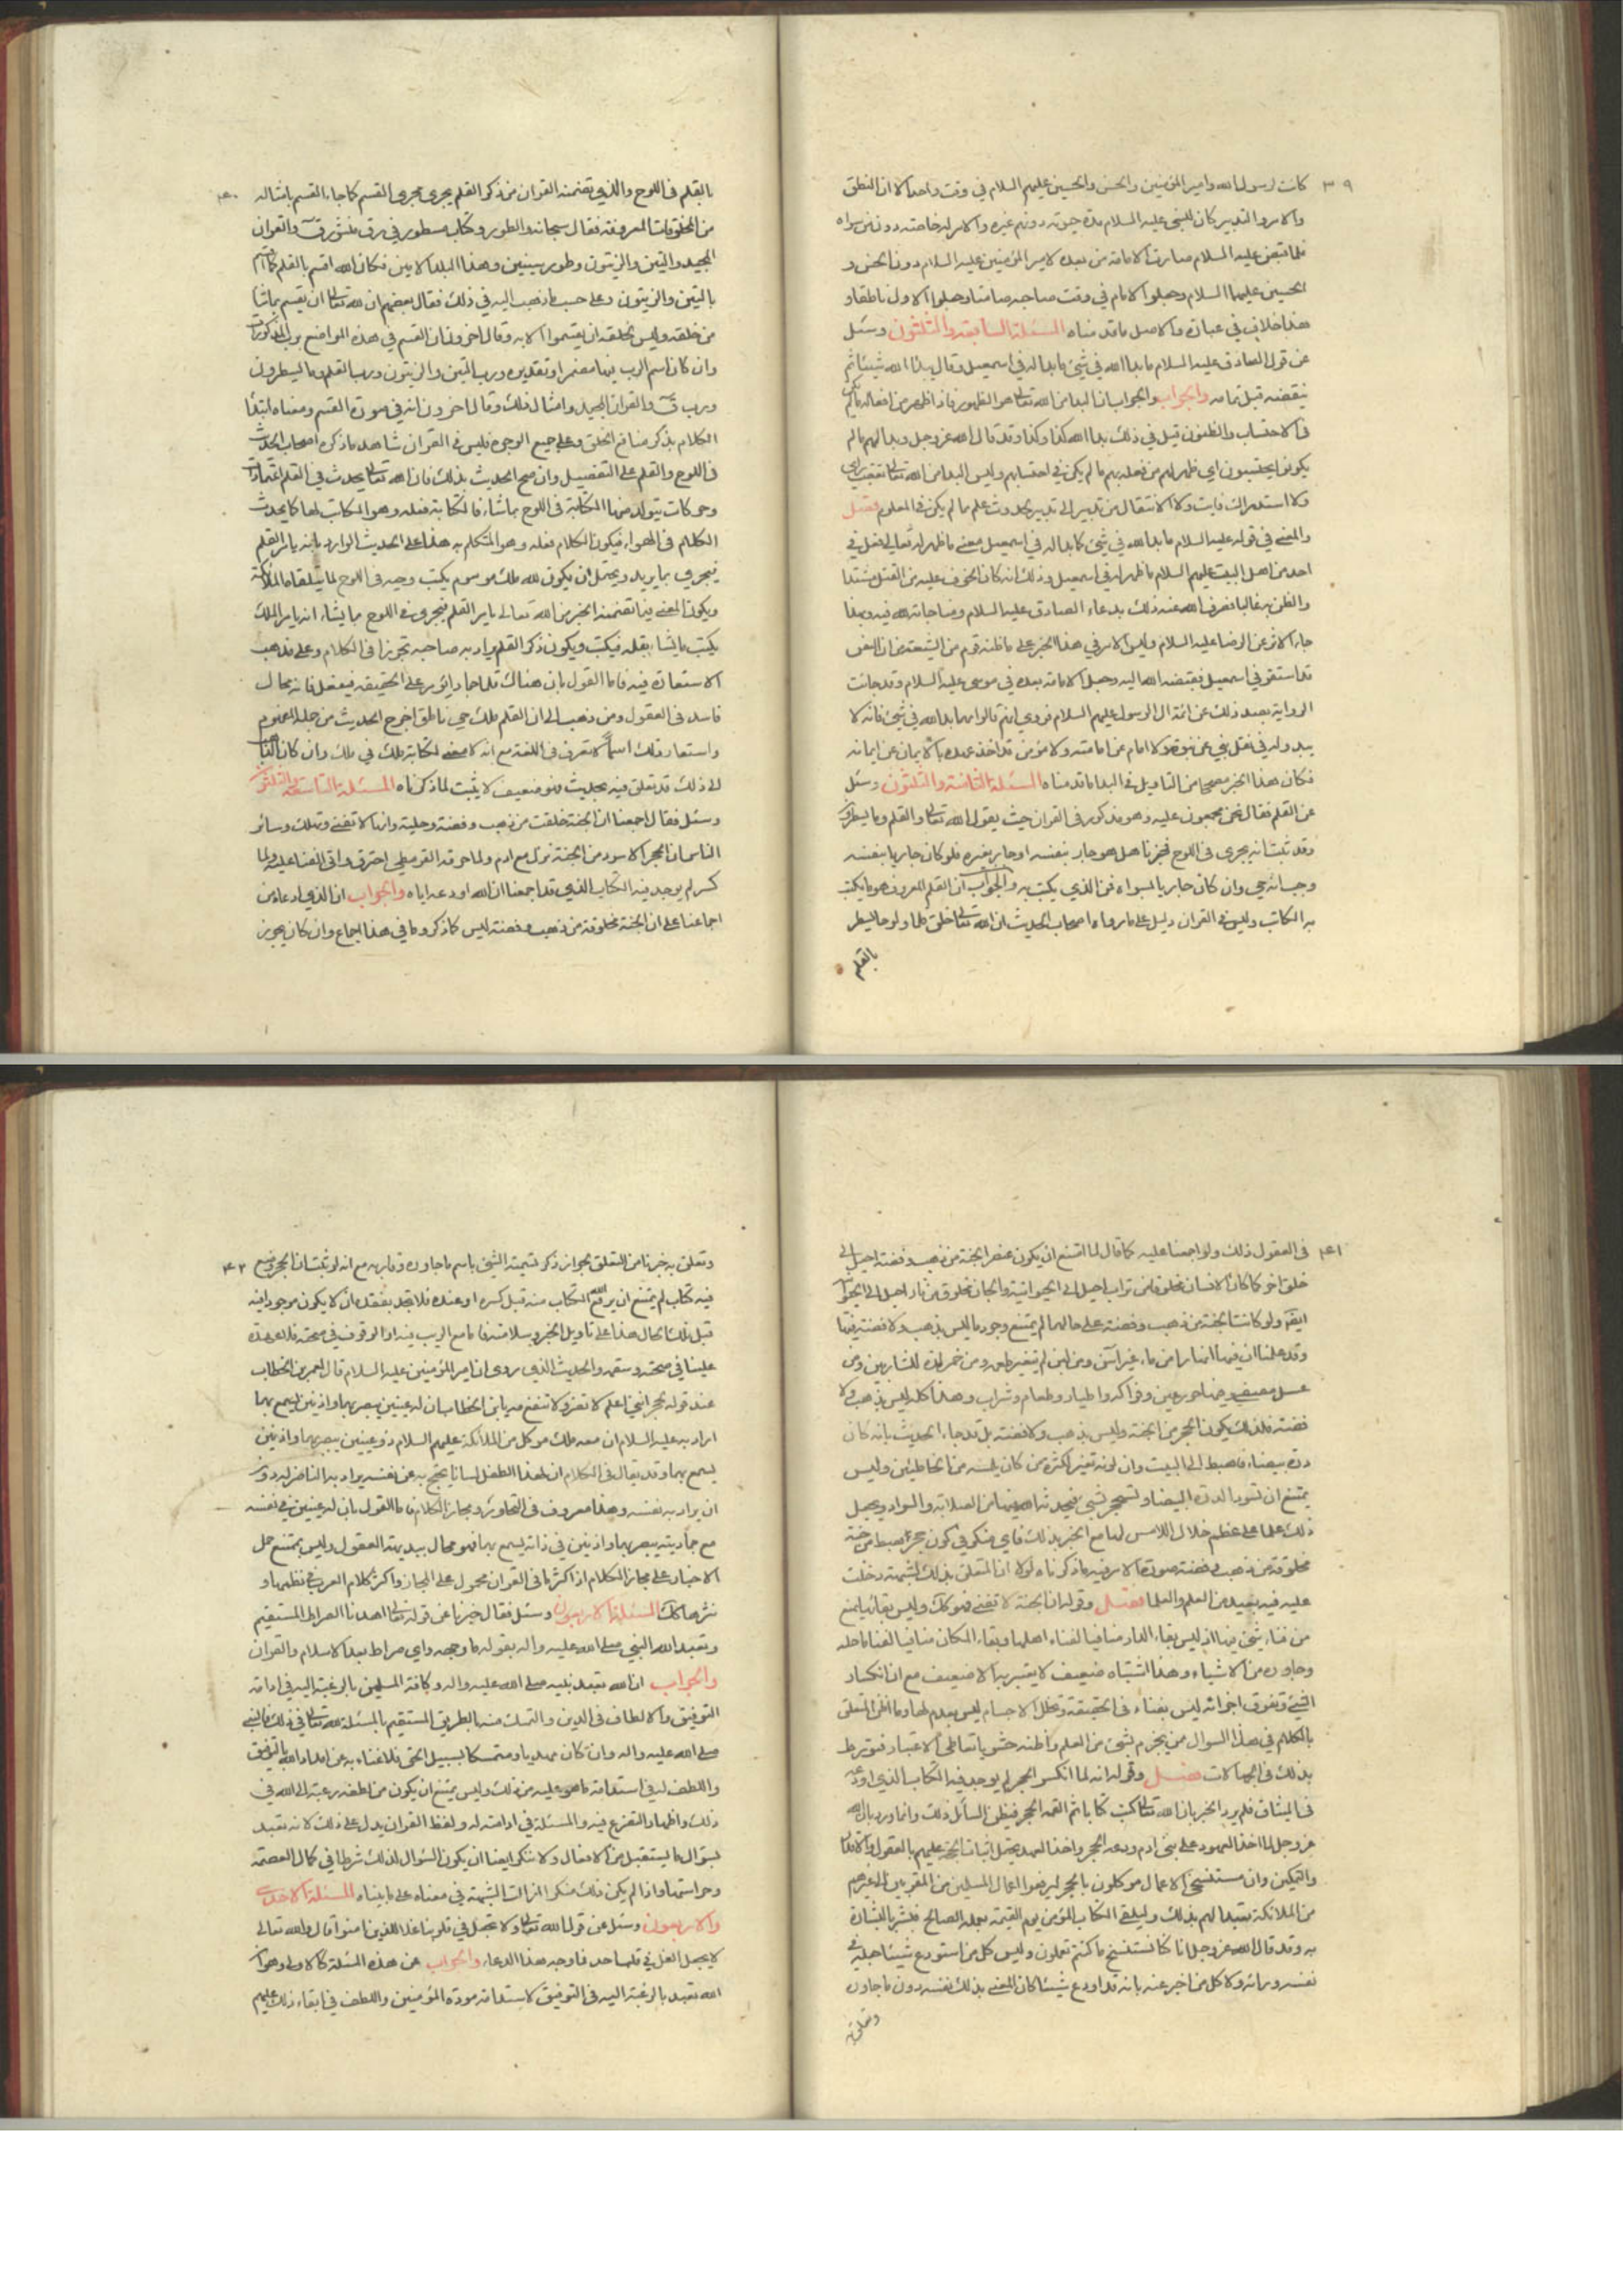 ٣٩
كانت لرسول الله وامير المؤمنين والحسن والحسين عليهم السلام في وقت واحد الا ان النطق
والامر والتدبير كان للنبي عليه السلام مدة حيوته دونهم غيره والامر له خاصته دون من سواه
فلما قبض عليه السلام صارت الامامة من بعده لامير المؤمنين عليه السلام دون الحسن و
الحسين عليهما السلام وجعلوا الامام في وقت صاحبه صامتا وجعلوا الاول ناطقا و
هذا خلاف في عبارة والاصل ما قدمناه المسئلة السابعة والثلثون وسئل
عن قول الصادق عليه السلام ما بدا الله في شيء ما بدا له في اسمعيل وقال يبدا الله شيئا ثم
ينقضه قبل تمامه والجواب والجواب ان البدا من الله تعالى هو الظهور فاذا ظهر من افعاله ما لم يكن
في الاحتساب والظنون قيل في ذلك بدا الله كذا وكذا وقد قال الله عز وجل وبدا لهم ما لم
يكونوا يحتسبون اي ظهر لهم من فعله بهم ما لم يكن في احتسابهم وليس البدا من الله تعالى تعقيب راي
ولا استدراك فايت ولا الانتقال من تدبير الى تدبير بحدوث علم ما لم يكن في المعلوم فصل
والمعنى في قوله عليه السلام ما بدا لله في شيء كما بدا له في اسمعيل معنى ما ظهر له تعالى فعل في
احد من اهل البيت عليهم السلام ما ظهر له في اسمعيل وذلك انه كان الخوف عليه من القتل مشتدا
والظن به غالبا فصرف الله عنه ذلك بدعاء الصادق عليه السلام ومناجاته لله فيه وبهذا
جاء الاثر عن الرضا عليه السلام وليس الامر في هذا الخبر على ما ظنه قوم من الشيعة من ان النص
قد استقر في اسمعيل فقبضه الله اليه وجعل الامامة بعده في موسى عليه السلام وقد جائت
الرواية بضد ذلك عن ائمة ال الرسول عليهم السلام فروي انهم قالوا مهما بدا لله في شيء فانه لا
يبدو له في نقل نبي عن نبوته ولا امام عن امامته ولا مؤمن قد اخذ عهده بالايمان عن ايمانه
فكان هذا الخبر مصححا من التاويل في البدا ما قدمناه المسئلة الثامنة والثلثون وسئل
عن القلم فقال نحن مجمعون عليه وهو مذكور في القران حيث يقول الله تعالى والقلم وما يسطرون
وقد ثبت انه يجري في اللوح فخبرنا هل هو جار بنفسه او جار بغيره فلو كان جاريا بنفسه
وجب انه حي وان كان جاريا بسواه فمن الذي يكتب به والجواب ان القلم المعروف هو ما يكتب
به الكاتب وليس في القران دليل على ما رواه اصحاب الحديث ان الله تعالى خلق قلما ولوحا يسطر
بالقلم
٤٠
بالقلم في اللوح والذي تضمنه القران من ذكر القلم يجري مجرى القسم كما جاء القسم بامثاله
من المخلوقات المعروفة فقال سبحانه والطور وكتاب مسطور في رق منشور ق والقران
المجيد والتين والزيتون وطور سينين وهذا البلد الامين فكان الله اقسم بالقلم كما اقسم
بالتين والزيتون وعلى حسب ما ذهب اليه في ذلك فقال بعضهم ان لله تعالى ان يقسم بما شاء
من خلقه وليس لخلقه ان يقسموا الا به وقال اخرون ان القسم في هذه المواضع برب المذكورات
وان كان اسم الرب فيها مضمرا وتقديره ورب التين والزيتون ورب القلم وما يسطرون
ورب ق والقران المجيد وامثال ذلك وقال اخرون انه في صورة القسم ومعناه ابتداء
الكلام بذكر منافع الخلق وعلى جميع الوجوه فليس في القران شاهد ما ذكره اصحاب الحديث
في اللوح والقلم على التفصيل وان صح الحديث بذلك فان الله تعالى يحدث في القلم اعتمادات
وحركات يتولد منها الكتابة في اللوح بما شاء فالكتابة فعله وهو الكاتب لها كما يحدث
الكلام في الهواء فيكون الكلام فعله وهو المتكلم به هذا على الحديث الوارد بانه يامر القلم
فيجري بما يريد ويحتمل ان يكون لله ملك موسوم يكتب وحيه في اللوح لما يتلقاه الملائكة
ويكون المعنى فيما تضمنه الخبر من الله تعالى يامر القلم فيجري في اللوح ما يشاء انه يامر الملك
يكتب ما يشاء بقلمه فيكتب ويكون ذكر القلم يراد به صاحبه تجوزا في الكلام وعلى مذهب
الاستعارة فيه فاما القول بان هناك قلما جمادا يؤمر على الحقيقة فيفعل فانه محال
فاسد في العقول ومن ذهب الى ان القلم ملك حي ناطق اخرج الحديث من جملة المفهوم
واستعار ذلك اسما لا تعرف في اللغة مع انه لا معنى لكتابة ملك في ملك وان كان الذاهب
الى ذلك قد تعلق فيه بحديث فهو ضعيف لا يثبت لما ذكرناه المسئلة التاسعة والثلثون
وسئل فقال اجمعنا ان الجنة خلقت من ذهب وفضة وحلية وانها لا تفنى وتهلك وسائر
الناس ان الحجر الاسود من الجنة نزل مع ادم ولما حرقه القرمطي احترق واتى الفناء عليه ولما
كسر لم يوجد فيه الكتاب الذي قد اجمعنا ان الله اودعه اياه والجواب ان الذي ادعاه من
اجماعنا على ان الجنة مخلوقة من ذهب وفضة ليس كما ذكر وما في هذا اجماع وان كان يجوز
٤١
في العقول ذلك ولو اجمعنا عليه كما قال لما امتنع ان يكون عنصر الجنة من ذهب وفضة احيل الى
خلق اخر كما كان الانسان مخلوقا من تراب احيل الى الحيوانية والجان مخلوق من نار احيل الى الحيوانية
ايضا ولو كانت الجنة من ذهب وفضة على حالهما لم يمتنع وجود ما ليس بذهب ولا فضة فيها
وقد علمنا ان فيها انهارا من ماء غير اسن ومن لبن لم يتغير طعمه ومن خمر لذة للشاربين ومن
عسل مصفى وفيها حور عين وفواكه واطيار وطعام وشراب وهذا كله ليس بذهب ولا
فضة فلذلك يكون الحجر من الجنة وليس بذهب ولا فضة بل قد جاء الحديث بانه كان
درة بيضاء فاهبط الى البيت وان لونه تغير لكثرة من كان يلمسه من الخاطئين وليس
يمتنع ان تسود الدرة البيضاء وتستحجر لشيء يحدثه الله فيها من الصلابة والسواد ويجعل
ذلك علما على عظم خلال اللامس لها مع الخبر بذلك فاي منكر في كون حجر اهبط من جنة
مخلوقة من ذهب وفضة صورة الامر فيه ما ذكرناه لولا ان المتعلق بذلك لشبهة دخلت
عليه فيه بعيد من العلم والعلما فصل وقوله ان الجنة لا تفنى فهو كك وليس بقائها يمنع
من فناء شيء فيها اذ ليس بقاء الدار منافيا لفناء اهلها وبقاء المكان منافيا لفناء ما حله
وجاوره من الاشياء وهذا اشتباه ضعيف لا يعتبر به الا ضعيف مع ان انكسار
الشيء وتفرق اجزائه ليس بفناء في الحقيقة وتحلل الاجسام ليس بعدم لها وما اظن المتعلق
بالكلام في هذا السوال ممن يخبر بشيء من العلم واظنه حشويا تعاطى الاعتبار فتورط
بذلك في الجهالات فصل وقوله انه لما انكسر الحجر لم يوجد فيه الكتاب الذي اودعه
في الميثاق فلم يرد الخبر بان الله تعالى كتب كتابا ثم القمه الحجر فيظن السائل ذلك وانما ورد بان الله
عز وجل لما اخذ العهود على بني ادم اودعه الحجر واخذ العهد يحتمل اثبات الحجة عليهم بالعقول والاقدار
والتمكين وان مستنسخي الاعمال موكلون بالحجر ليرفعوا اعمال المسلمين من المقربين الى غيرهم
من الملائكة تعبدا لهم بذلك وليلقى الكتاب المؤمن يوم القيمة بعمله الصالح فيبشر بالبشارة
به وقد قال الله عز وجل انا كنا نستنسخ ما كنتم تعملون وليس كل من استودع شيئا جعله في
نفسه وذاته ولا كل من اخبر عنه بانه قد اودع شيئا كان المعنى بذلك نفسه دون ما جاوره
وتعلق به
٤٢
وتعلق به ضربا من التعلق لجواز ذكر تسمية الشيء باسم ما جاوره وقاربه مع انه لو ثبت ان الحجر وضع
فيه كتاب لم يمتنع ان يرفع الله الكتاب منه قبل كسره او عنده فلا نجد بفقده ان لا يكون موجودا فيه
قبل ذلك الحال هذا على تاويل الخبر وسلامته فاما مع الريب فيه او الوقوف في صحته فلا عهدة
علينا في صحته وسقمه والحديث الذي روى ان امير المؤمنين عليه السلام قال لعمر بن الخطاب
عند قوله لحجر انني اعلم لا تضر ولا تنفع مه يابن الخطاب ان له عينين يبصر بهما واذنين يسمع بهما
اراد به عليه السلام ان معه ملك موكل من الملائكة عليهم السلام ذو عينين يبصر بهما واذنين
يسمع بهما وقد يقال في الكلام ان لهذا الطفل لسانا يحتج به عن نفسه يراد به الناصر له دون
ان يراد به نفسه وهذا معروف في التحاور ومجاز الكلام فاما القول بان له عينين في نفسه
مع جماديته يبصر بهما واذنين في ذاته ليسمع بهما فهو محال ببديهة العقول وليس يمتنع حمل
الاخبار على مجاز الكلام اذ اكثر ما في القران محمول على المجاز واكثر كلام العرب في نظمها و
نثرها كك المسئلة الاربعون وسئل فقال خبرنا عن قوله تعالى اهدنا الصراط المستقيم
وتعبد الله النبي صلى الله عليه واله بقوله ما وجهه واي صراط بعد الاسلام والقران
والجواب ان الله تعبد نبيه صلى الله عليه واله وكافة المسلمين بالرغبة اليه في ادامة
التوفيق والالطاف في الدين والتمسك منه بالطريق المستقيم بالمسئلة لله تعالى في ذلك فالنبي
صلى الله عليه واله وان كان مهديا ومتمسكا بسبيل الحق فلا غناء به عن امداد الله بالتوفيق
واللطف له في استدامة ما هو عليه من ذلك وليس يمتنع ان يكون من لطفه رغبته الى الله في
ذلك واظهار التضرع فيه والمسئلة في ادامته له ولفظ القران يدل على ذلك لانه تعبد
بسؤال ما يستقبل من الافعال ولا ننكر ايضا ان يكون السؤال لذلك شرطا في كمال العصمة
وحراستها واذا لم يكن ذلك منكرا زالت الشبهة في معناه على ما بيناه المسئلة الاحدى
والاربعون وسئل عن قول الله تعالى ولا تجعل في قلوبنا غلا للذين امنوا قال والله تعالى
لا يجعل الغل في قلب احد فما وجه هذا الدعاء والجواب عن هذه المسئلة كالاولى وهو ان
الله تعبد بالرغبة اليه في التوفيق لاستدامة مودة المؤمنين واللطف في ابقاء ذلك عليهم